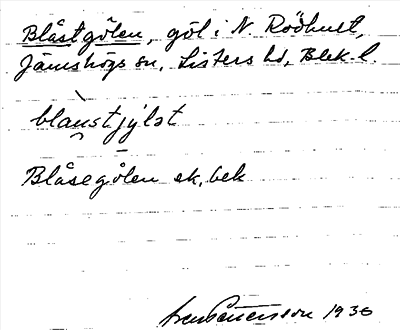 Blåstgölen, göl i N. Rödhult,
Jämshögs sn, Listers hd, Blek. l.
Blåsegölen ek. bek
1930